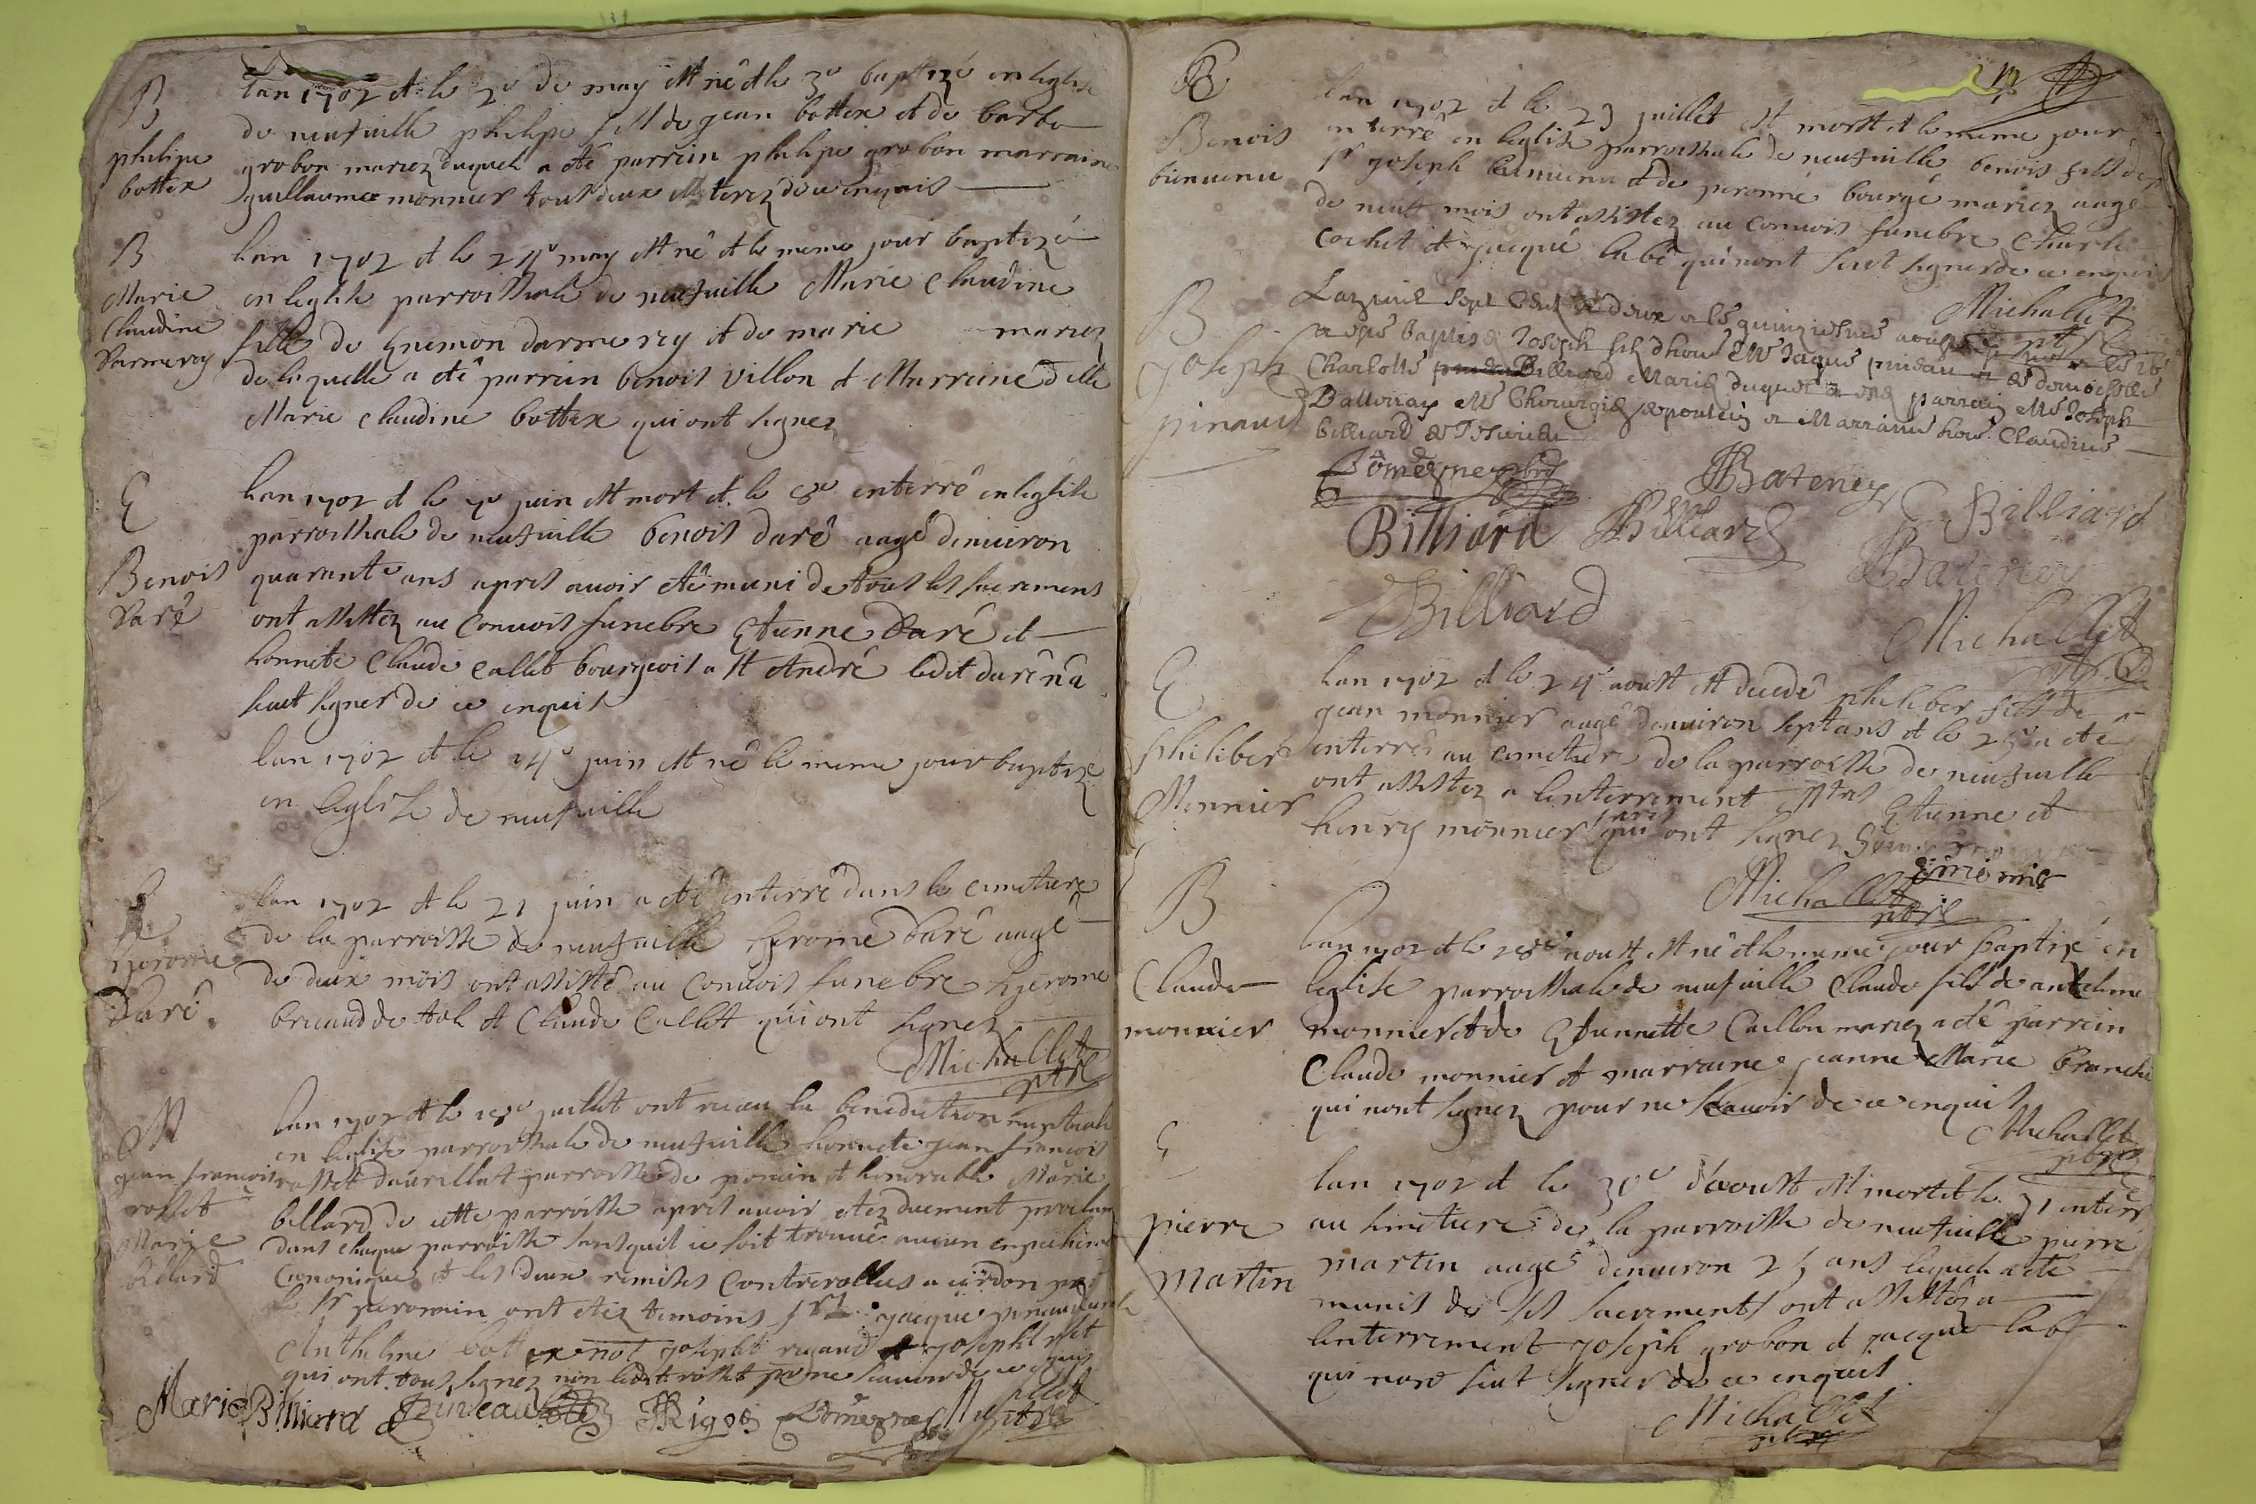 B
philipe
bottex
Lan 1702 et le 2e de may est né et le 3e baptizé en leglise
de neufuille philipe fils de jean bottex et de barbe
grobon mariez duquel a eté parrein philipe grobon marraine
guillaumee monnier tous deux illiterez de ce enquis
B
Marie
Claudine
Darmerey
Lan 1702 et le 24e may est né et le meme jour baptizé
en leglise parroissiale de neufuille Marie Claudine
fille de Enemon darmerey et de marie mariez
de laquelle a eté parrein benois villon et Marreine dlle
Marie Claudine bottex qui ont signez
E
Benois
Daré
Lan 1702 et le 7e juin est mort et le 8e enterré en leglise
parroissiale de neufuille benois daré aagé denuiron
quarante ans apres auoir eté muni de tous les sacremens
ont assistez au conuois funebre Etienne Daré et
honnete Claude Callet bourgeois a st André ledit daré na
sceut signer de ce enquis
Lan 1702 et le 14e juin est né le meme jour baptizé
en leglise de neufuille
E
hierome
Daré
Lan 1702 et le 21 juin a eté enterré dans le cimetiere
de la parroisse de neufuille hierome daré aagé
de deux mois ont assisté au conuois funebre hierome
et Claude Callet qui ont signez
Michallet
ptre
M
jean francois
rosset
Marie
billard
Lan 1702 et le 18e juillet ont receu la benediction nuptiale
en leglise parroissiale de neufuille honnete jean francois
rosset parroisse de poncin et honorable Marie
billard de cette parroisse apres auoir etez duement proclam
dans chaque parroisse sans quil ce soit trouué aucun empechime
Canonique et les deux remises Controrollees a cerdon par
le sr peromin ont etez temoins jacque pinaud
Anthelme bottex not joseph rigaud et joseph
qui ont tous signez non ledit rosset pr ne scauoir de ce enquis
Marie Billiard Pineau Rigod Michallet
ptre
E
Benois
bienuenu
Lan 1702 et le 23 juillet est mort et le meme jour
enterré en leglise parroissiale de neufuille benois fils de
sr joseph bienuenu et de peronne bourgé mariez aagé
de neuf mois ont assistez au conuois funebre Charle
Cochet et jacque labé qui nont sceut signer de ce enquis
Michallet
ptre
B
joseph
pinaud
Lan mil sept cent et deux et le quinziesme aoust
a esté baptisé Joseph filz dhon Mre Jaques pineau et de damoiselle
Charlotte Billiard Mariés duquel a esté parrein Mre Joseph
Battenay Mre Chirurgie et Marraine hon Claudine
billiard
Batenay
C Billiard
Billiard Billiard
Batenay
Billiard
Michallet
ptre
E
philiber
Monnier
Lan 1702 et le 24e aoust est decedé philiber fils de
jean monnier aagé denuiron sept ans et le 25e a eté
enterré au cimetiere de la parroisse de neufuille
ont assistez a lenterrement Etienne et
henry monnier qui ont signez
Michallet
ptre
B
Claude
monnier
Lan 1702 et le 28e aoust est né et le meme jour baptizé en
leglise parroissiale de neufuille Claude fils de anthelme
monnier et de Etiennette Caillon mariez a eté parrein
Claude monnier et marraine jeanne Marie branche
qui nont signez pour ne scauoir de ce enquis
Michallet
ptre
E
pierre
Martin
Lan 1702 et le 30e daoust est mort et le 31 enterr
au simetiere de la parroisse de neufuille pierre
martin aagé denuiron 25 ans lequel a eté
munis de ses sacrements ont assistez a
lenterrement joseph grobon et jacque labé
qui nont sceut signer de ce enquis
Michallet
ptre